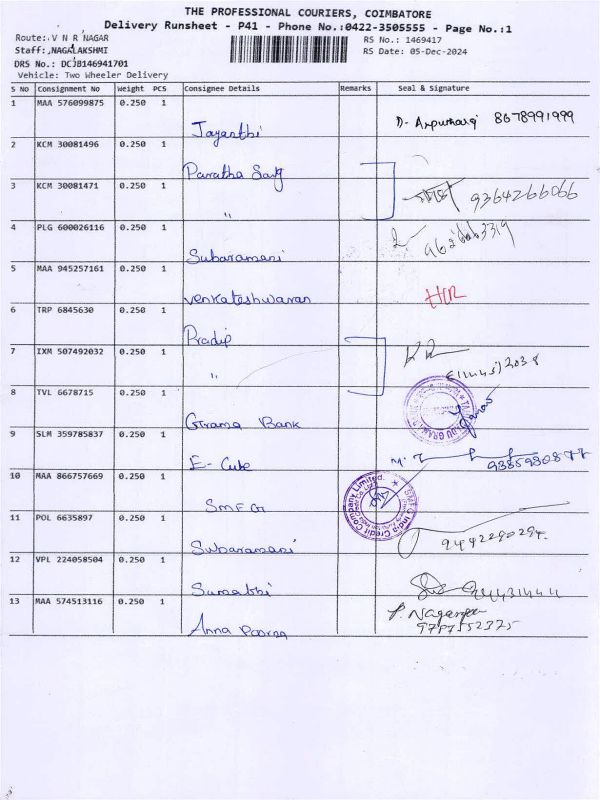 THE PROFESSIONAL COURIERS, COIMBATORE
Delivery Runsheet - P41 - Phone No.:0422-3505555 - Page No.:1
Route:.V N R NAGAR
RS No.: 1469417
Staff:,NAGALAKSHMI
RS Date: 05-Dec-2024
DRS No.: DCJB146941701
Vehicle: Two Wheeler Delivery
S No Consignment No Weight PCS Consignee Details Remarks Seal & Signature
1 MAA 576099875 0.250 1
Jayanthi D. 8678991999
2 KCM 30081496 0.250 1
Paratha
3 KCM 30081471 0.250 1
" 9364266066
4 PLG 600026116 0.250 1
Subaramani
5 MAA 945257161 0.250 1
Venkateshwaran
6 TRP 6845630 0.250 1
Pradip
7 IXM 507492032 0.250 1
"
8 TVL 6678715 0.250 1
Grama Bank
9 SLM 359785837 0.250 1
E-Cube
10 MAA 866757669 0.250 1
SMFG
SMFG India Credit Company Limited.
11 POL 6635897 0.250 1
Subaramani
12 VPL 224058504 0.250 1
13 MAA 574513116 0.250 1
Anna Poorna